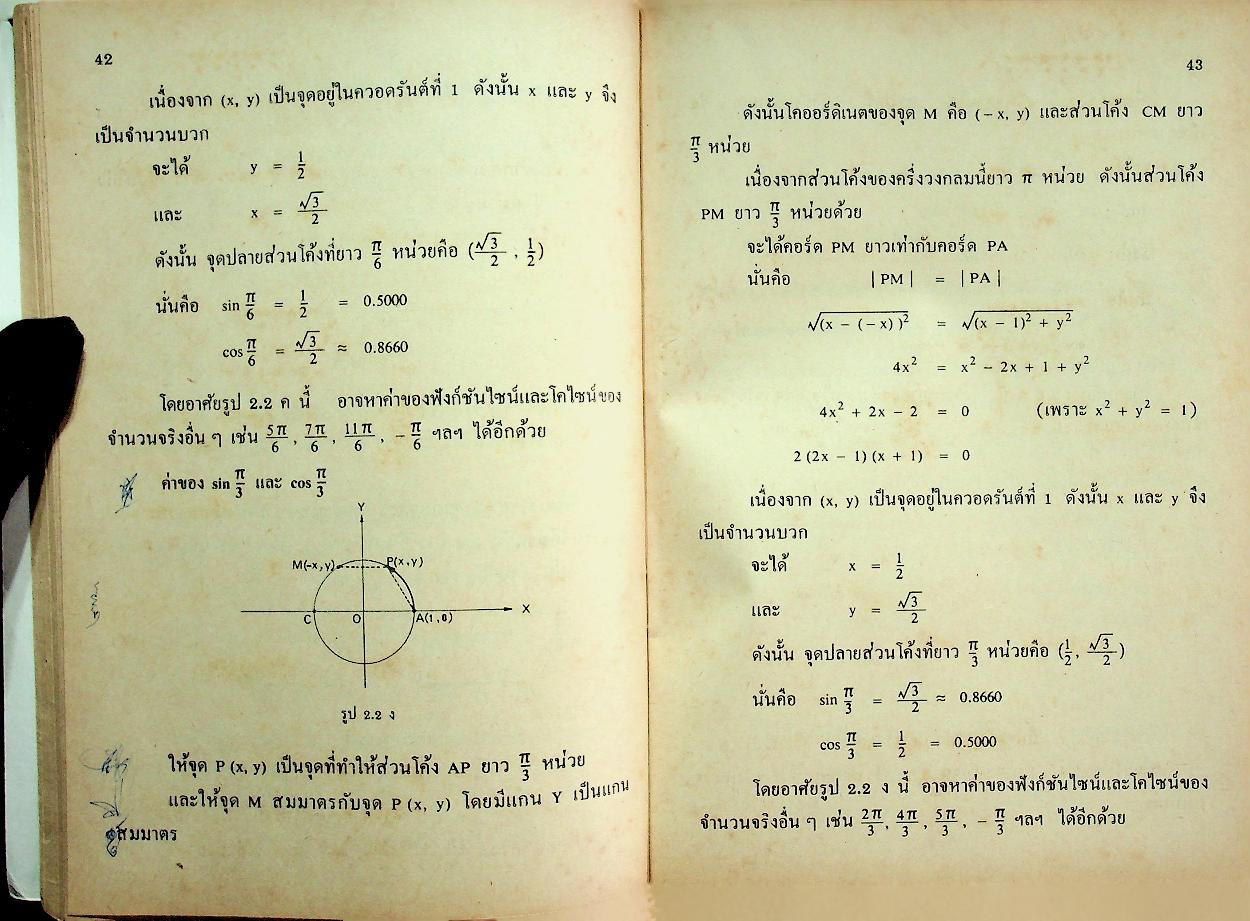 42
เนื่องจาก (x, y) เป็นจุดอยู่ในควอดรันต์ที่ 1 ดังนั้น x และ y จึง
เป็นจำนวนบวก
จะได้ y = 1/2
และ x = √3/2
ดังนั้น จุดปลายส่วนโค้งที่ยาว π/6 หน่วยคือ (√3/2 , 1/2)
นั่นคือ sin π/6 = 1/2 = 0.5000
cos π/6 = √3/2 ≈ 0.8660
โดยอาศัยรูป 2.2 ค นี้ อาจหาค่าของฟังก์ชันไซน์และโคไซน์ของ
จำนวนจริงอื่น ๆ เช่น 5π/6 , 7π/6 , 11π/6 , − π/6 ฯลฯ ได้อีกด้วย
ค่าของ sin π/3 และ cos π/3
Y
M(-x,y) P(x,y)
C O A(1,0) X
รูป 2.2 ง
ให้จุด P (x, y) เป็นจุดที่ทำให้ส่วนโค้ง AP ยาว π/3 หน่วย
และให้จุด M สมมาตรกับจุด P (x, y) โดยมีแกน Y เป็นแกน
สมมาตร
43
ดังนั้นโคออร์ดิเนตของจุด M คือ (−x, y) และส่วนโค้ง CM ยาว
π/3 หน่วย
เนื่องจากส่วนโค้งของครึ่งวงกลมนี้ยาว π หน่วย ดังนั้นส่วนโค้ง
PM ยาว π/3 หน่วยด้วย
จะได้คอร์ด PM ยาวเท่ากับคอร์ด PA
นั่นคือ | PM | = | PA |
√(x − (−x))² = √(x − 1)² + y²
4x² = x² − 2x + 1 + y²
4x² + 2x − 2 = 0 (เพราะ x² + y² = 1)
2 (2x − 1) (x + 1) = 0
เนื่องจาก (x, y) เป็นจุดอยู่ในควอดรันต์ที่ 1 ดังนั้น x และ y จึง
เป็นจำนวนบวก
จะได้ x = 1/2
และ y = √3/2
ดังนั้น จุดปลายส่วนโค้งที่ยาว π/3 หน่วยคือ (1/2, √3/2)
นั่นคือ sin π/3 = √3/2 ≈ 0.8660
cos π/3 = 1/2 = 0.5000
โดยอาศัยรูป 2.2 ง นี้ อาจหาค่าของฟังก์ชันไซน์และโคไซน์ของ
จำนวนจริงอื่น ๆ เช่น 2π/3, 4π/3, 5π/3, − π/3 ฯลฯ ได้อีกด้วย